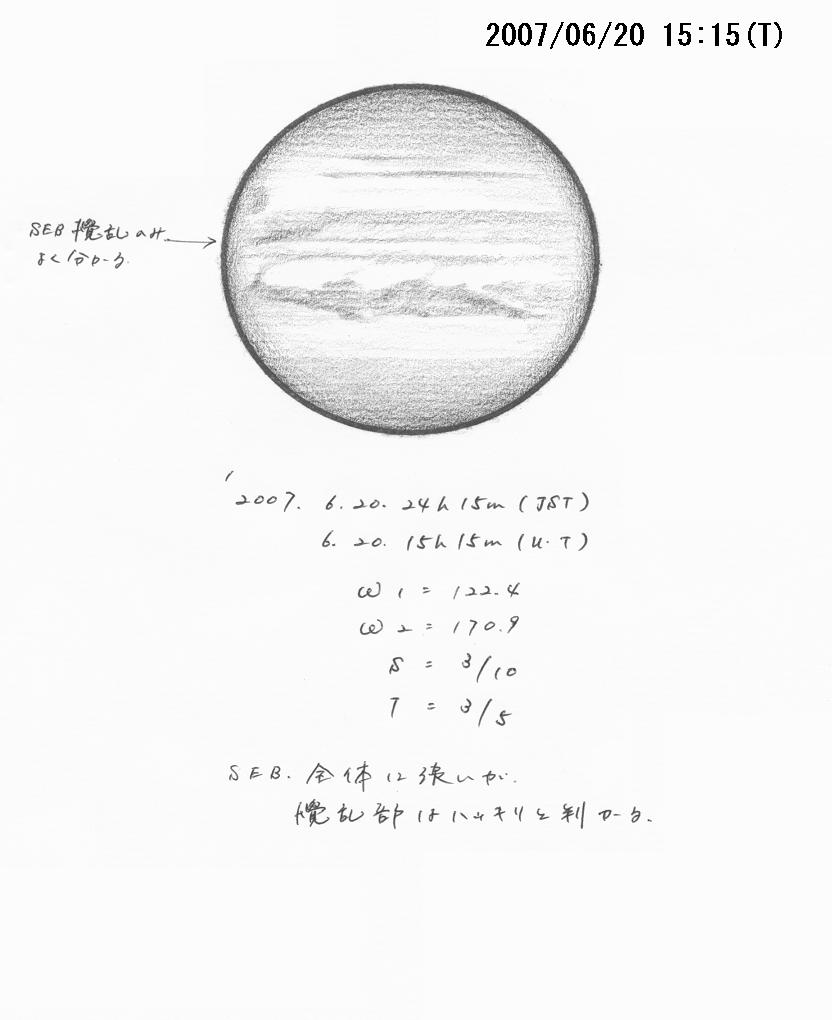 2007/06/20 15:15(T)
SEB 攪乱のみ
よく分かる.
'2007. 6. 20. 24h 15m (JST)
6. 20. 15h 15m (U.T)
ω1 = 122.4
ω2 = 170.9
S = 3/10
T = 3/5
SEB. 全体に淡いが.
攪乱部はハッキリと判かる.